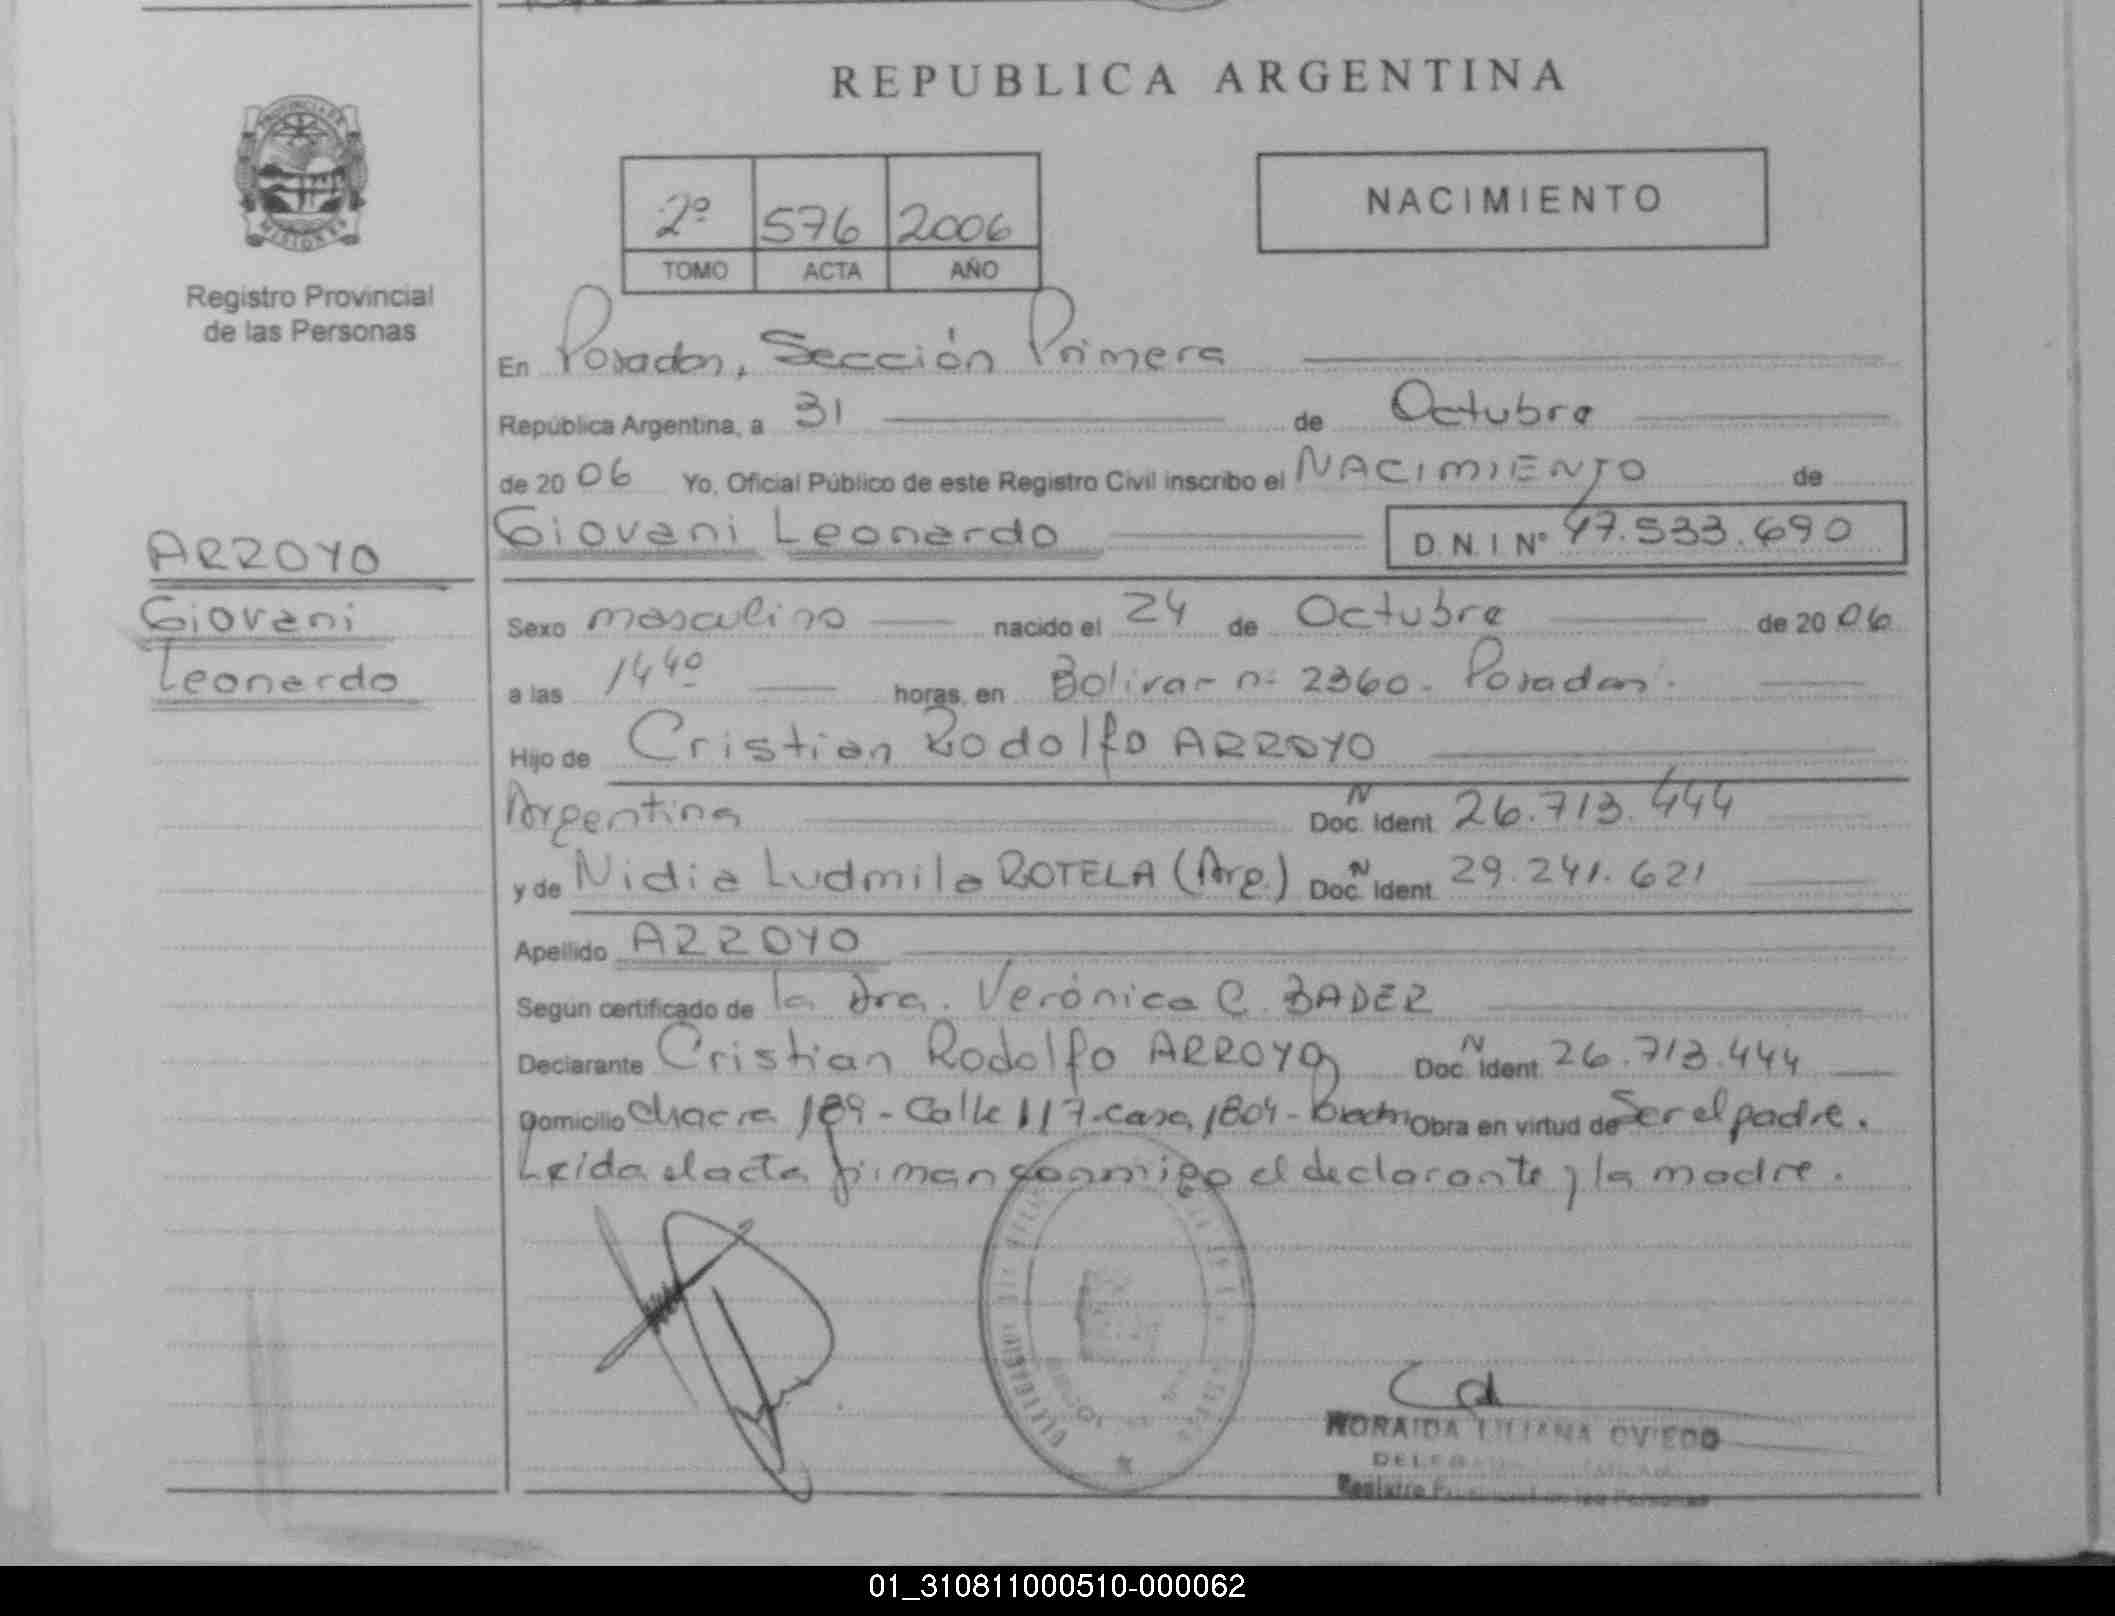 REPUBLICA ARGENTINA
PROVINCIA DE
MISIONES
Registro Provincial
de las Personas
2º 576 2006
TOMO ACTA AÑO
NACIMIENTO
En Posadas, Sección Primera
República Argentina, a 31 de Octubre
de 20 06 Yo, Oficial Público de este Registro Civil inscribo el NACIMIENTO de
Giovani Leonardo D.N.I Nº 47.533.690
ARROYO
Giovani
Leonardo
Sexo masculino nacido el 24 de Octubre de 20 06
a las 14 40 horas, en Bolivar nº 2360. Posadas.
Hijo de Cristian Rodolfo ARROYO
Argentina Doc. N Ident. 26.713.444
y de Nidia Ludmila ROTELA (Arg.) Doc. N Ident. 29.241.621
Apellido ARROYO
Según certificado de la Dra. Verónica C. BADER
Declarante Cristian Rodolfo ARROYO Doc. N Ident. 26.713.444
Domicilio Chacra 189 - Calle 117 - casa 1804 - Obra en virtud de Ser el padre.
Leida el acta firman conmigo el declarante y la madre.
LILIANA OVIEDO
Registro
01_310811000510-000062